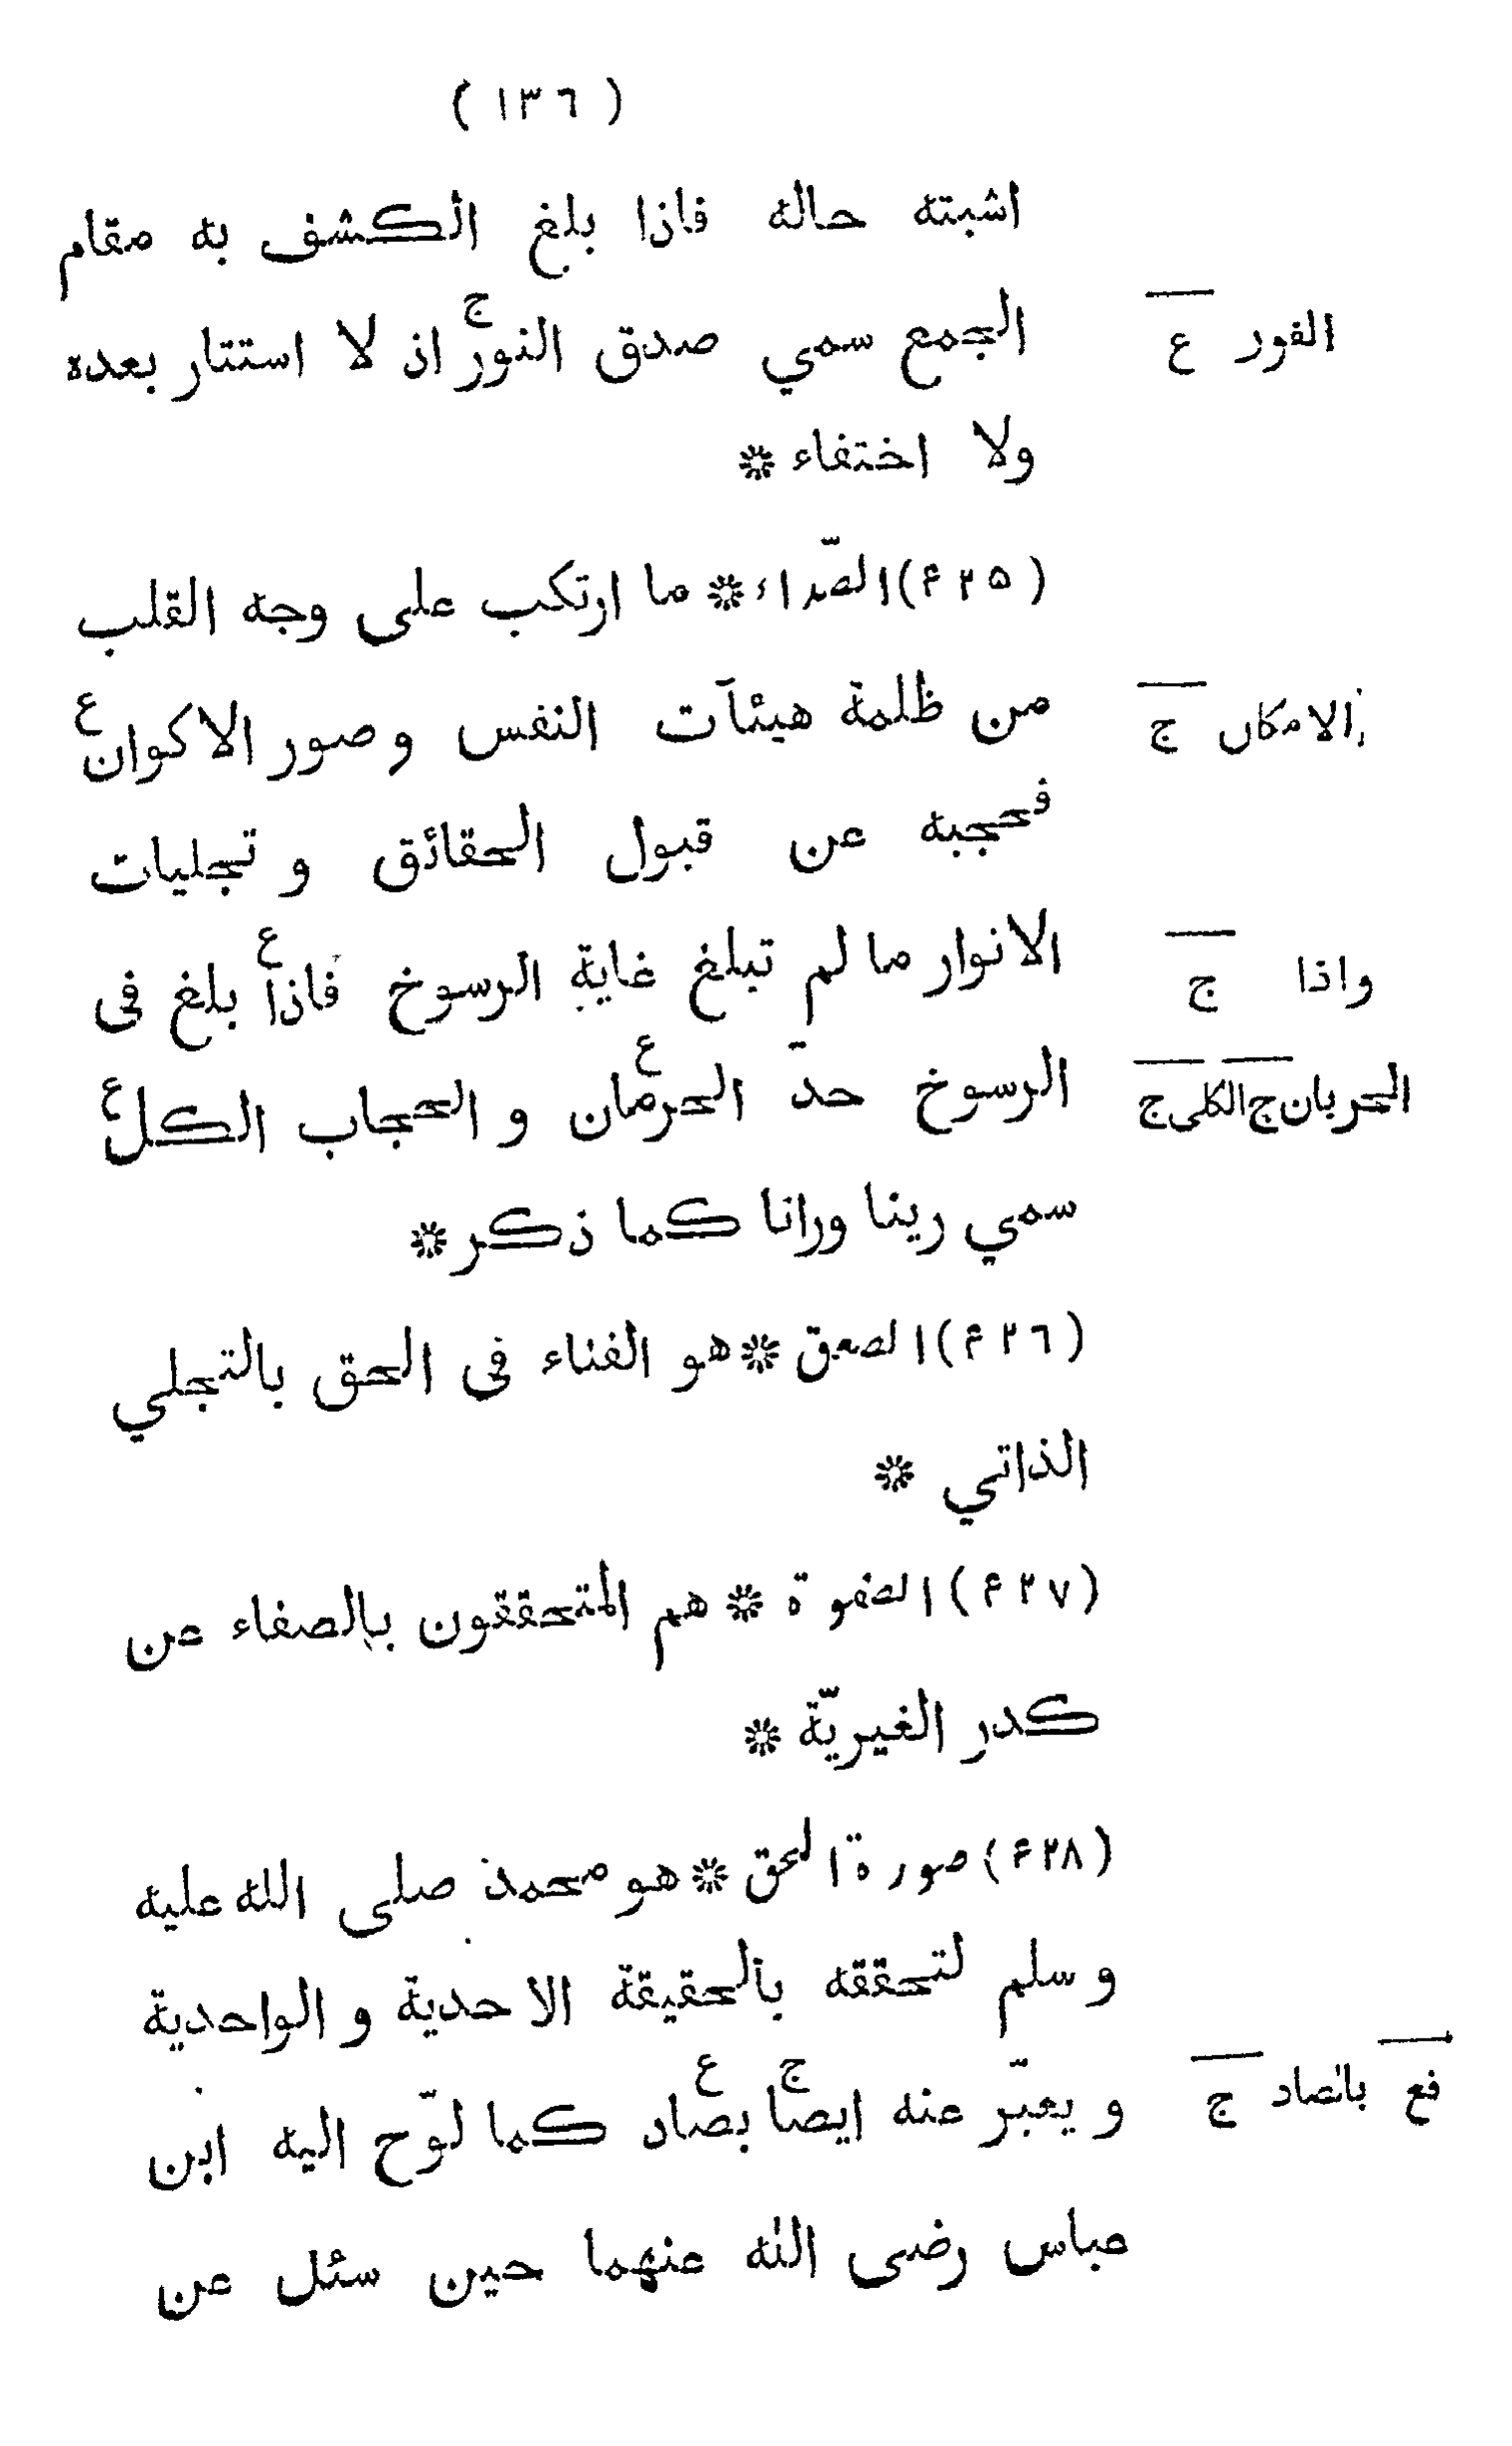 ( ١٣٦ )
اشبته حاله فاذا بلغ الكشف به مقام
الجمع سمي صدق النور ج اذ لا استتار بعده
الفور ع
ولا اختفاء *
( ۴۲۵ ) الصّداء * ما ارتكب على وجه القلب
من ظلمة هيئآت النفس و صور الاكوان ع
الامكان ج
فحجبه عن قبول الحقائق و تجليات
الانوار ما لم تبلغ غاية الرسوخ فاذا ع بلغ فى
واذا ج
الرسوخ حدّ الحرمان ع و الحجاب الكل ع
الحربان ج الكلى ج
سمي رينا ورانا كما ذكر *
( ۴۲٦ ) الصعق * هو الفناء فى الحق بالتجلي
الذاتي *
( ۴۲۷ ) الصفوة * هم المتحققون بالصفاء عن
كدر الغيريّة *
( ۴۲۸ ) صورة الحق * هو محمد صلى الله عليه
و سلم لتحققه بالحقيقة الاحدية و الواحدية
و يعبّر عنه ايضا ج بصاد ع كما لوّح اليه ابن
فع بالصاد ج
عباس رضى الله عنهما حين سئل عن